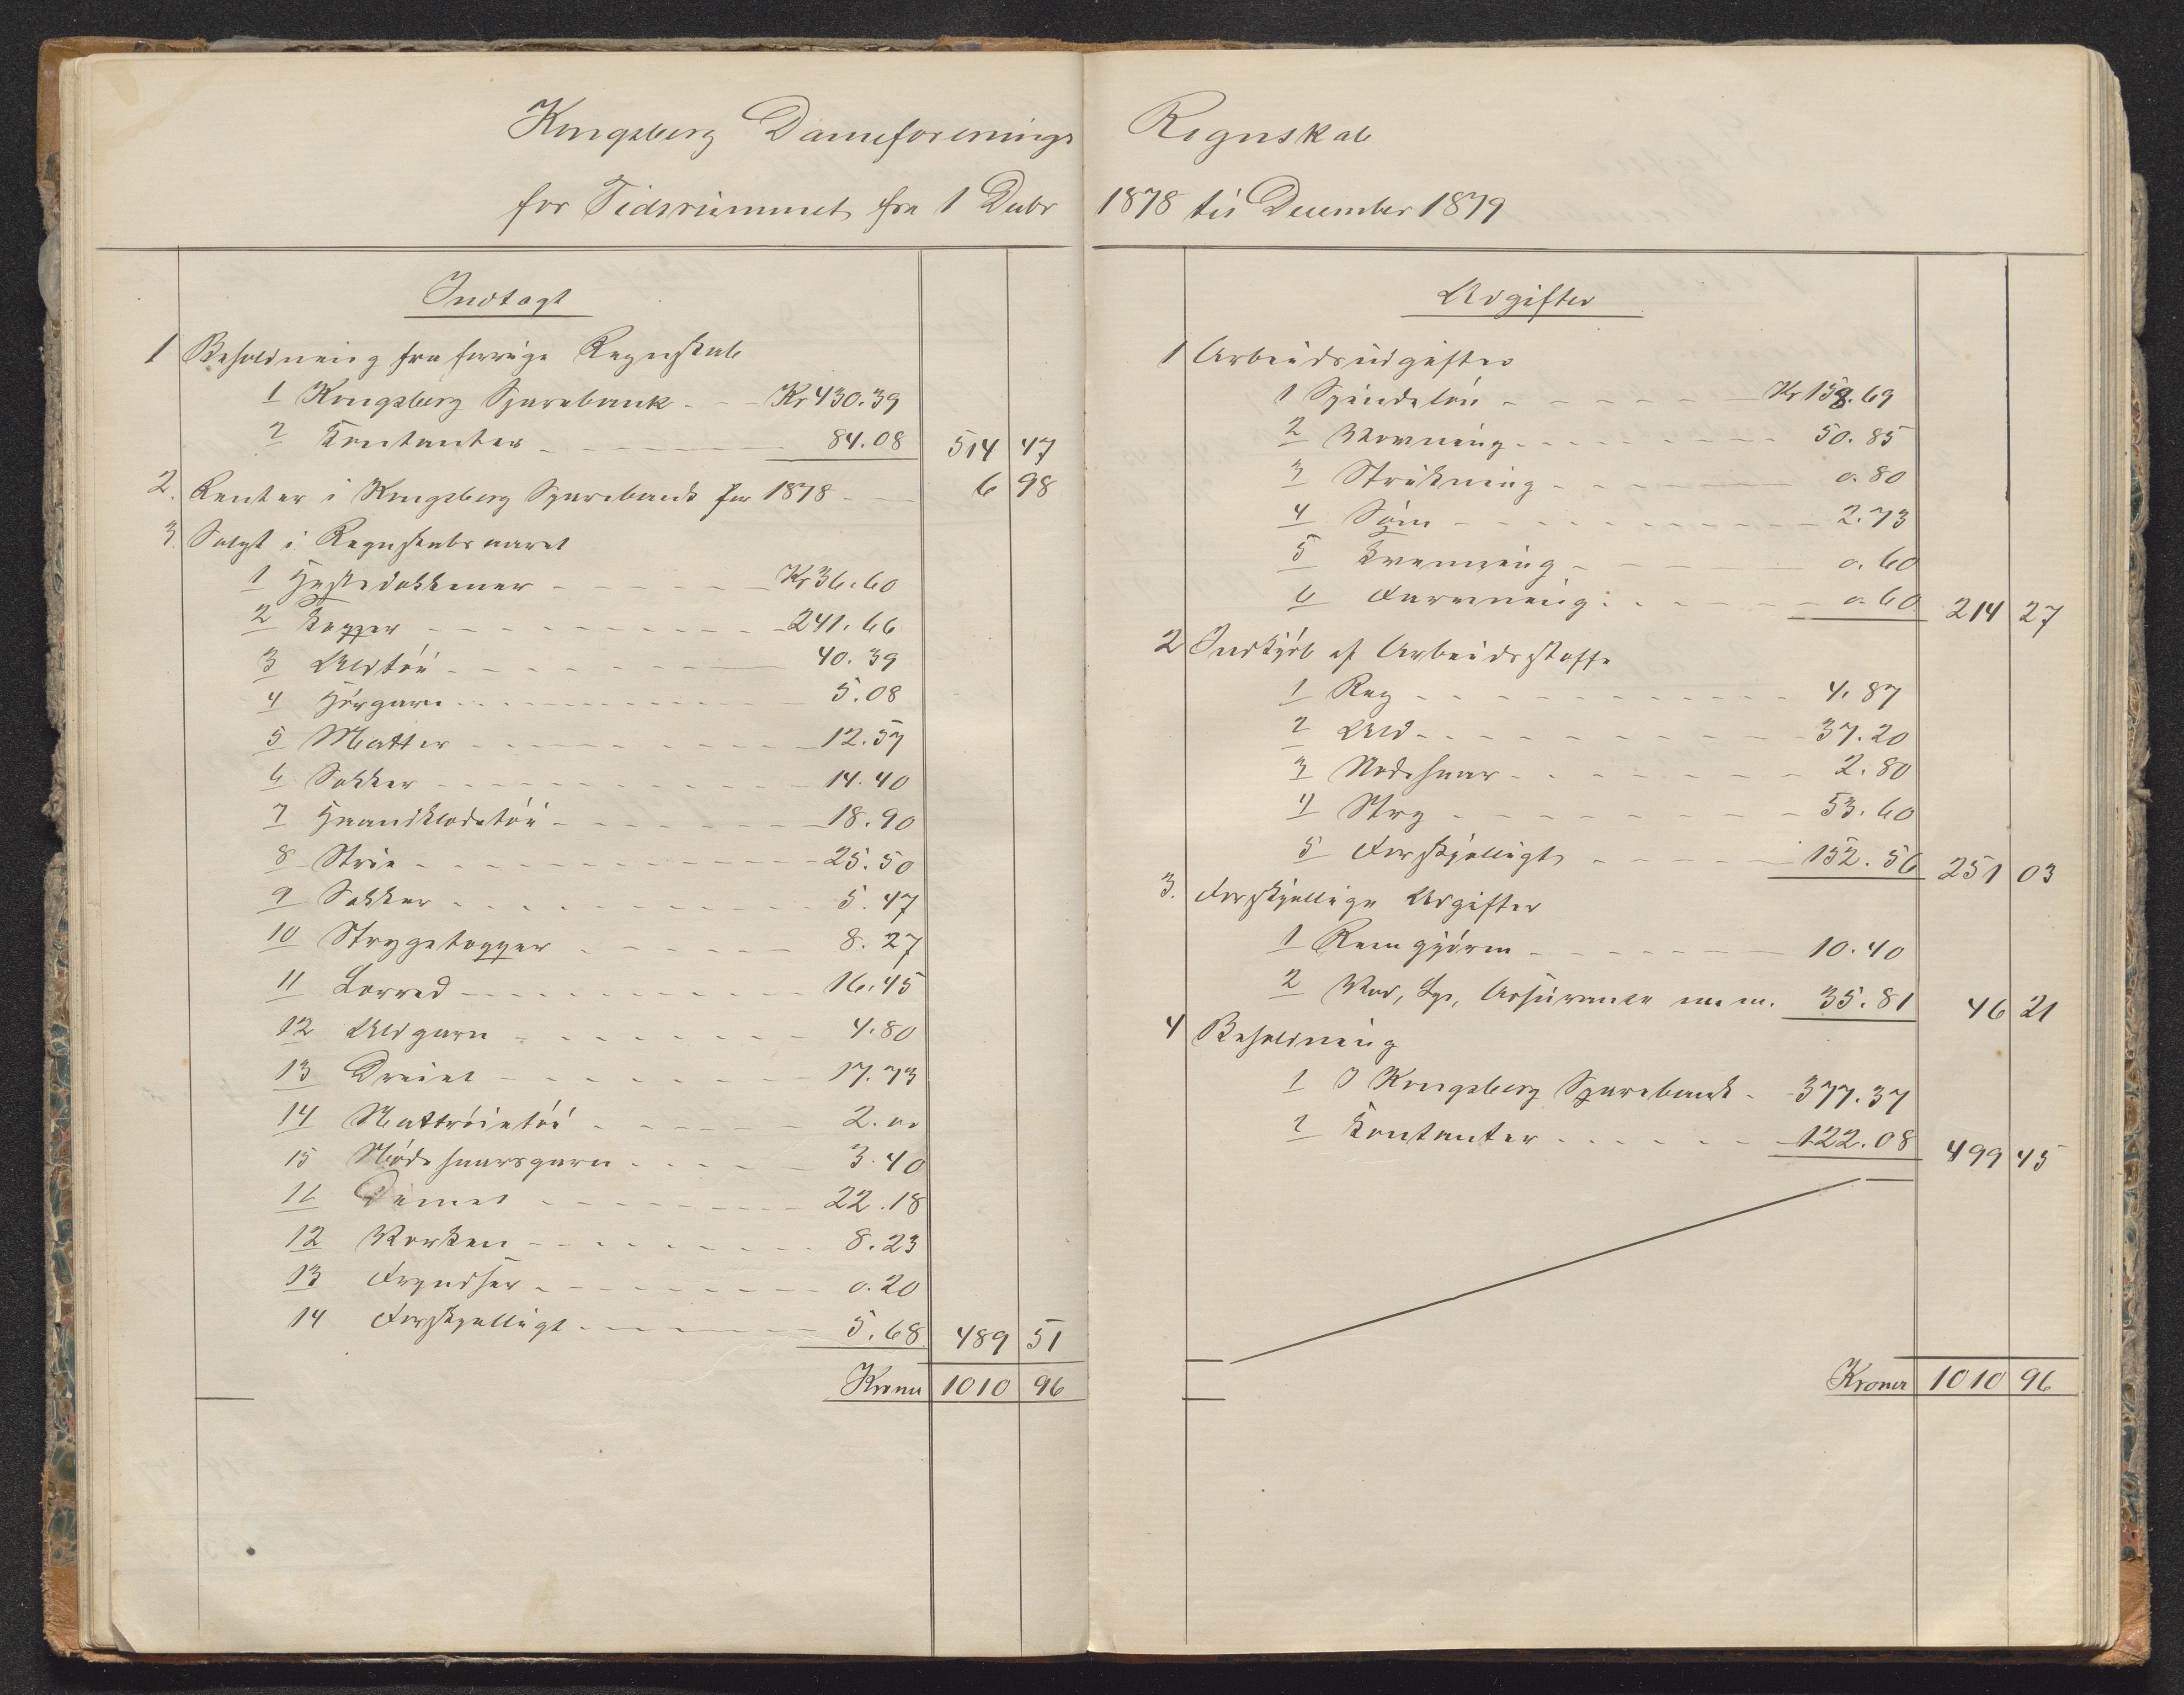 Kongsberg Dameforenings Regnskab
for Tidsrummet fra 1 Decbr 1878 til December 1879
Indtægt
1 Beholdning fra forrige Regnskab
1 Kongsberg Sparebank Kr 430.39
2 Contanter 84.08 514 47
2. Renter i Kongsberg Sparebank for 1878 6 98
3. Solgt i Regnskabsaaret
1 Hestedækkener Kr 36.60
2 Tæpper 241.66
3 Uldtöi 40.39
4 Hörgarn 5.08
5 Matter 12.57
6 Sokker 14.40
7 Haandklædetöi 18.90
8 Strie 25.50
9 Sækker 5.47
10 Strygetæpper 8.27
11 Lærred 16.45
12 Uldgarn 4.80
13 Dreiel 17.73
14 Nattröietöi 2.00
15 Nödehaarsgarn 3.40
16 22.18
12 Værken 8.23
13 Fryndser 0.20
14 Forskjelligt 5.68 489 51
Kroner 1010 96
Udgifter
1 Arbeidsudgifter
1 Spindelön Kr 158.69
2 Vævning 50.85
3 Strikning 0.80
4 Söm 2.73
5 0.60
6 Farvning 0.60 214 27
2 Indkjöb af Arbeidsstoffe
1 4.87
2 Uld 37.20
3 Nödehaar 2.80
4 Stry 53.60
5 Forskjelligt 152.56 251 03
3. Forskjellige Udgifter
1 Rengjören 10.40
2 Ved, Lys, Assurance m. m. 35.81 46 21
4 Beholdning
1 I Kongsberg Sparebank 377.37
2 Contanter 122.08 499 45
Kroner 1010 96